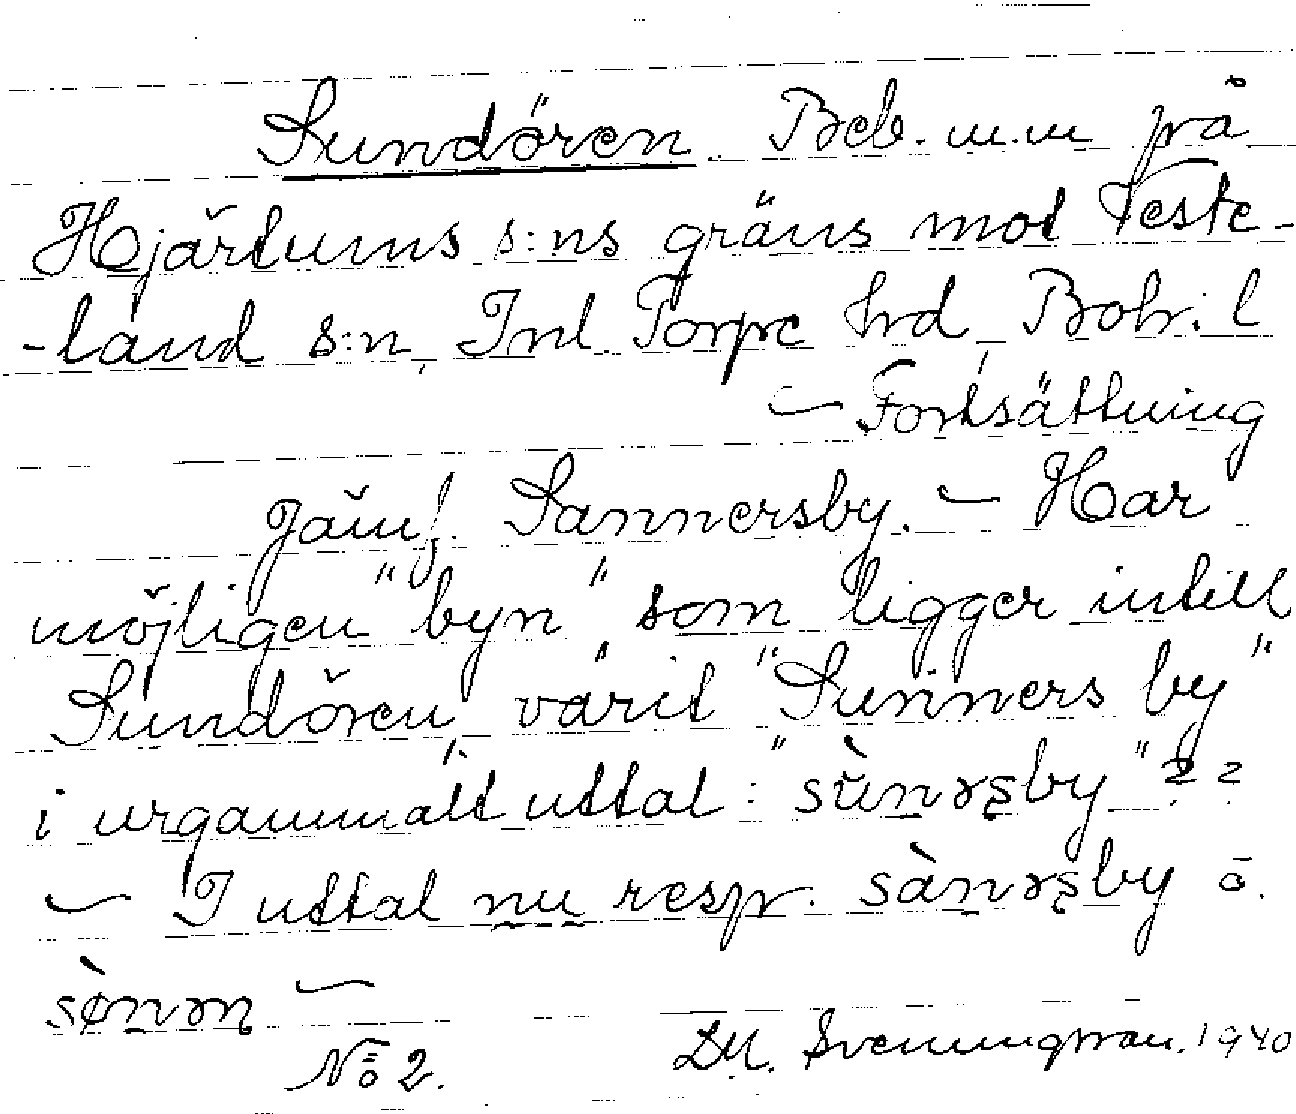 Sundören Beb. m.m på
Hjärtums s:ns gräns mot Veste-
-land s:n, Inl Torpe hrd, Boh. l
— Fortsättning
Jämf. Sannersby. — Har
möjligen "byn", som ligger intill
Sundören, varit "Sunners by"
i urgammalt uttal: "sùnərsby"??
— I uttal nu resp. sànərsby o.
sø̀nən —
No 2. D.M. Svenungsson. 1940